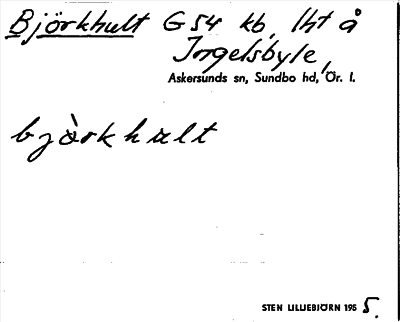 Björkhult G 54 kb, lht å
Ingelsbyle,
Askersunds sn, Sundbo hd, Ör. l.
bjàrkhult
STEN LILLIEBJÖRN 195 5.